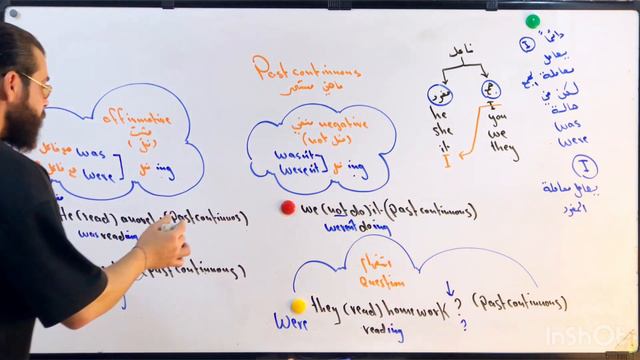 Past continuous
ماضي مستمر
affirmative
مثبت
مع فاعل was
مع فاعل were
فعل ing
منفي negative
(not)
wasn't
weren't
فعل ing
(read) a novel (past continuous)
was reading
(past continuous)
we (not do) it (past continuous)
weren't doing
استفهام
Question
they (read) homework ? (past continuous)
were reading ?
فاعل
مفرد
he
she
it
I
جمع
I
you
we
they
دائماً I
يعامل
معاملة جمع
لكن في
حالة
was
were
I
يعامل معاملة
المفرد
InShOt